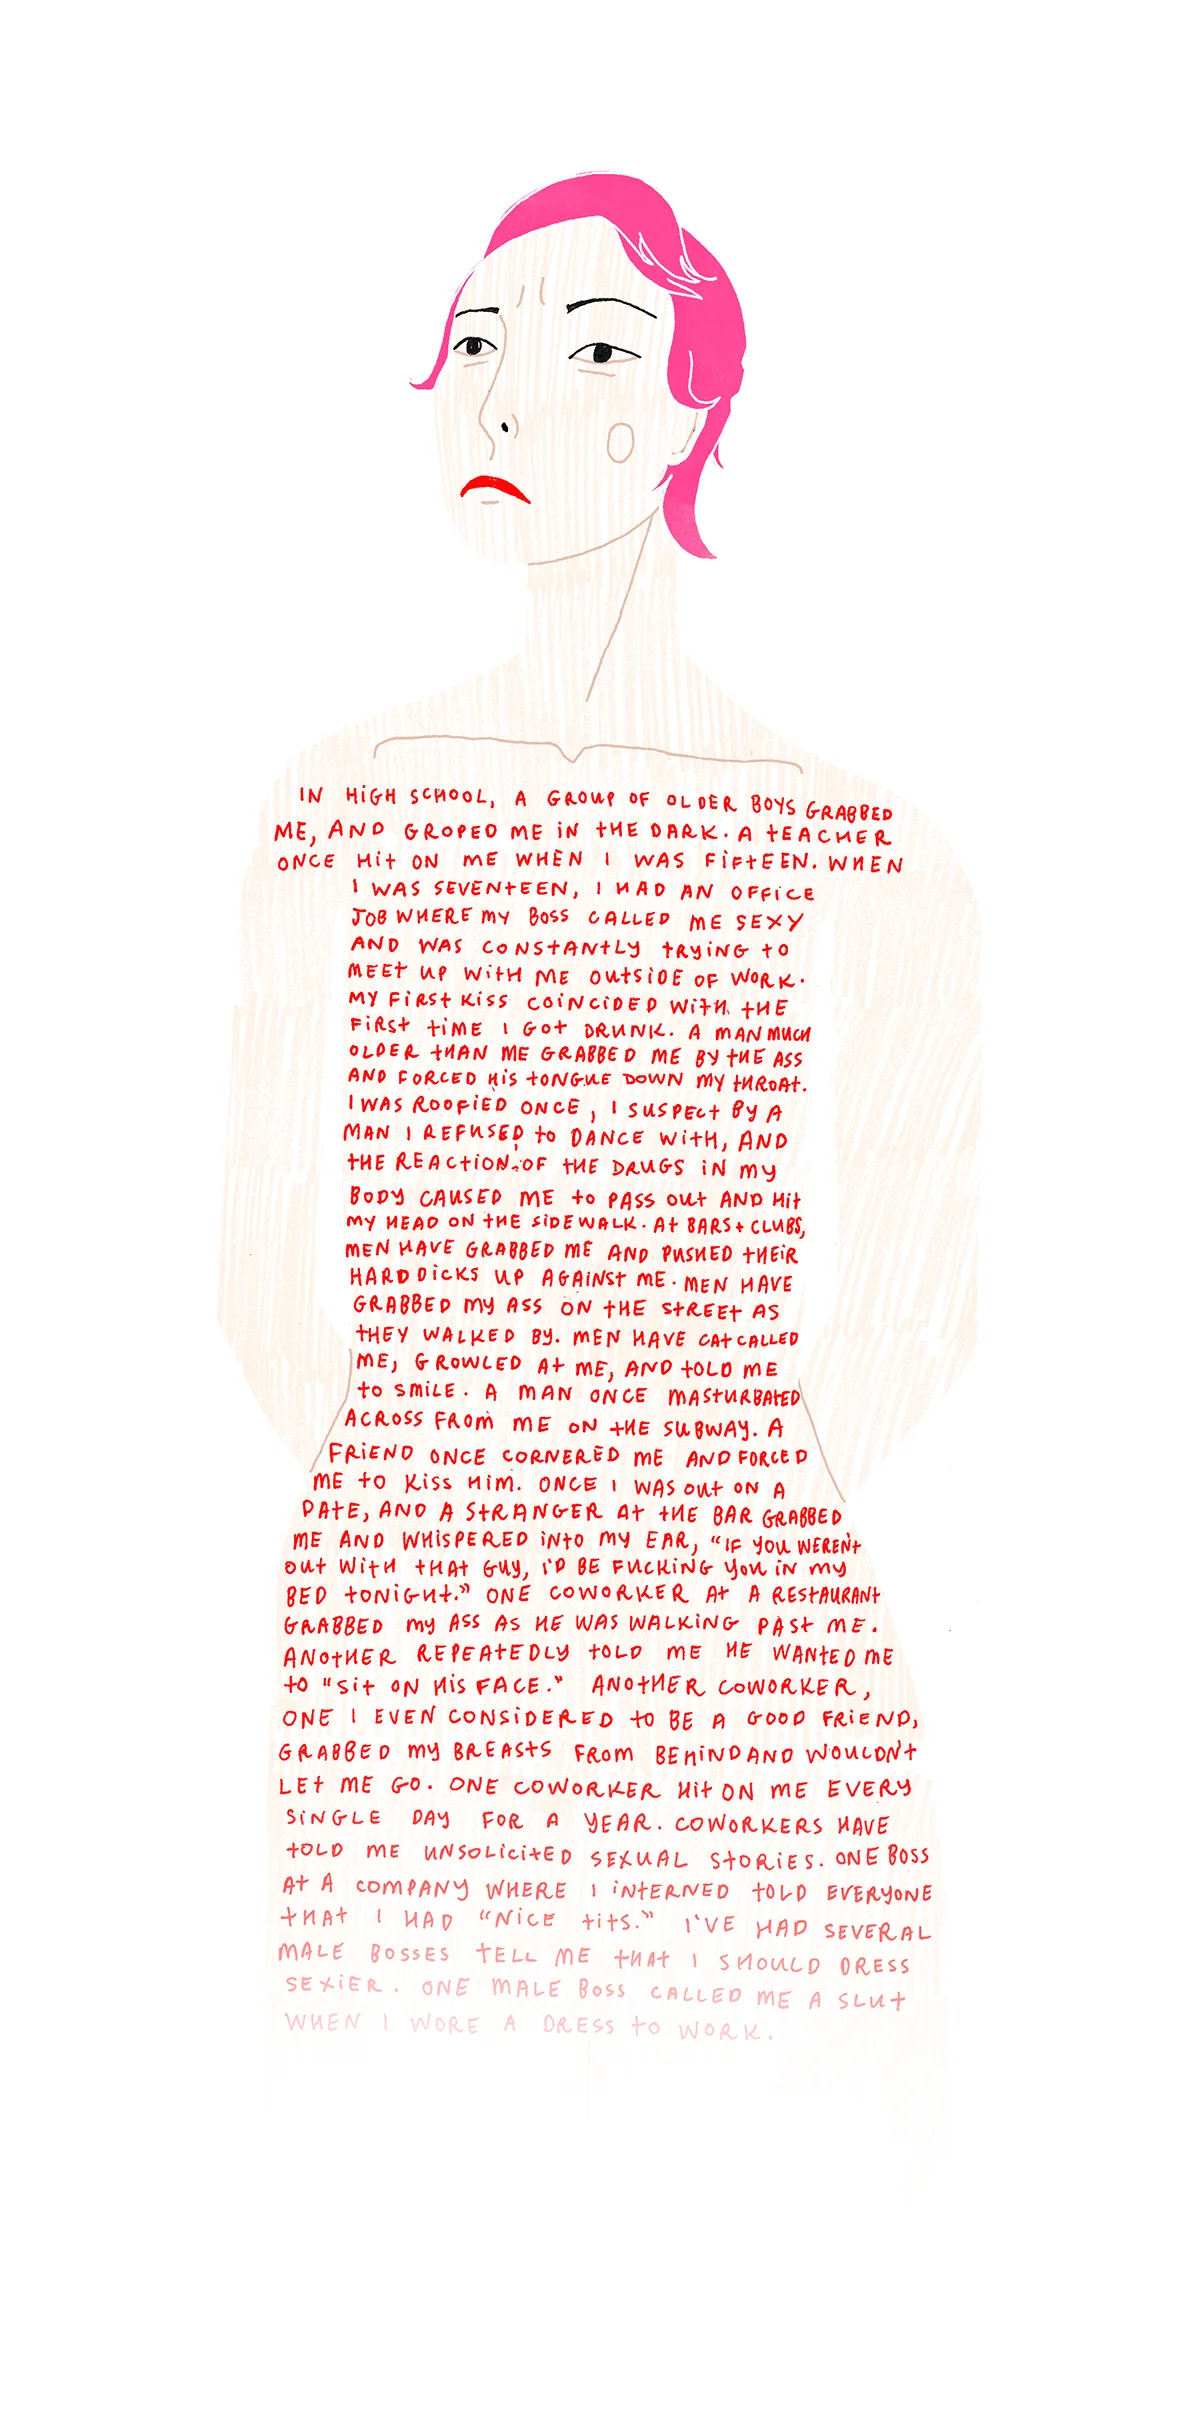 IN HIGH SCHOOL, A GROUP OF OLDER BOYS GRABBED
ME, AND GROPED ME IN THE DARK. A TEACHER
ONCE HIT ON ME WHEN I WAS FIFTEEN. WHEN
I WAS SEVENTEEN, I HAD AN OFFICE
JOB WHERE MY BOSS CALLED ME SEXY
AND WAS CONSTANTLY TRYING TO
MEET UP WITH ME OUTSIDE OF WORK.
MY FIRST KISS COINCIDED WITH THE
FIRST TIME I GOT DRUNK. A MAN MUCH
OLDER THAN ME GRABBED ME BY THE ASS
AND FORCED HIS TONGUE DOWN MY THROAT.
I WAS ROOFIED ONCE, I SUSPECT BY A
MAN I REFUSED TO DANCE WITH, AND
THE REACTION OF THE DRUGS IN MY
BODY CAUSED ME TO PASS OUT AND HIT
MY HEAD ON THE SIDEWALK. AT BARS + CLUBS,
MEN HAVE GRABBED ME AND PUSHED THEIR
HARD DICKS UP AGAINST ME. MEN HAVE
GRABBED MY ASS ON THE STREET AS
THEY WALKED BY. MEN HAVE CATCALLED
ME, GROWLED AT ME, AND TOLD ME
TO SMILE. A MAN ONCE MASTURBATED
ACROSS FROM ME ON THE SUBWAY. A
FRIEND ONCE CORNERED ME AND FORCED
ME TO KISS HIM. ONCE I WAS OUT ON A
DATE, AND A STRANGER AT THE BAR GRABBED
ME AND WHISPERED INTO MY EAR, "IF YOU WEREN'T
OUT WITH THAT GUY, I'D BE FUCKING YOU IN MY
BED TONIGHT." ONE COWORKER AT A RESTAURANT
GRABBED MY ASS AS HE WAS WALKING PAST ME.
ANOTHER REPEATEDLY TOLD ME HE WANTED ME
TO "SIT ON HIS FACE." ANOTHER COWORKER,
ONE I EVEN CONSIDERED TO BE A GOOD FRIEND,
GRABBED MY BREASTS FROM BEHIND AND WOULDN'T
LET ME GO. ONE COWORKER HIT ON ME EVERY
SINGLE DAY FOR A YEAR. COWORKERS HAVE
TOLD ME UNSOLICITED SEXUAL STORIES. ONE BOSS
AT A COMPANY WHERE I INTERNED TOLD EVERYONE
THAT I HAD "NICE TITS." I'VE HAD SEVERAL
MALE BOSSES TELL ME THAT I SHOULD DRESS
SEXIER. ONE MALE BOSS CALLED ME A SLUT
WHEN I WORE A DRESS TO WORK.